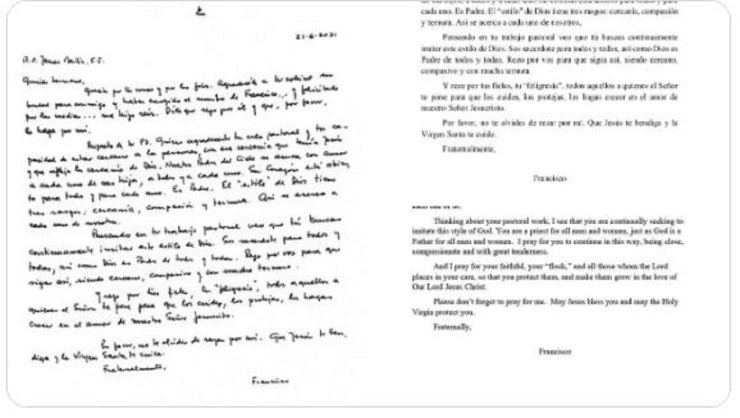 21-6-2021
Querido hermano,
Gracias por tu correo y por las fotos. Agradecele a tu sobrino
su bondad para conmigo y haber escogido el nombre de Francisco... y felicitalo
por las medias... me hizo reír. Dile que rezo por él y que, por favor,
lo haga por mí.
Respecto de tu P.S. Quiero agradecerte tu celo pastoral y tu ca-
pacidad de estar cercano a las personas, con esa cercanía que tenía Jesús
y que refleja la cercanía de Dios. Nuestro Padre del Cielo se acerca con amor
a cada uno de sus hijos, a todos y a cada uno. Su corazón está abier-
to para todos y para cada uno. Es Padre. El "estilo" de Dios tiene
tres rasgos: cercanía, compasión y ternura. Así se acerca a
cada uno de nosotros.
Pensando en tu trabajo pastoral veo que tú buscas
continuamente imitar este estilo de Dios. Sos sacerdote para todos y
todas, así como Dios es Padre de todos y todas. Rezo por vos para que
sigas así, siendo cercano, compasivo y con mucha ternura.
Y rezo por tus fieles, tu "feligresía", todos aquellos a
quienes el Señor te pone para que los cuides, los protejas, los hagas
crecer en el amor de nuestro Señor Jesucristo.
Por favor, no te olvides de rezar por mí. Que Jesús te ben-
diga y la Virgen Santa te cuide.
Fraternalmente,
Francisco
cada uno. Es Padre. El "estilo" de Dios tiene tres rasgos: cercanía, compasión
y ternura. Así se acerca a cada uno de nosotros.
Pensando en tu trabajo pastoral veo que tú buscas continuamente
imitar este estilo de Dios. Sos sacerdote para todos y todas, así como Dios es
Padre de todos y todas. Rezo por vos para que sigas así, siendo cercano,
compasivo y con mucha ternura.
Y rezo por tus fieles, tu "feligresía", todos aquellos a quienes el Señor
te pone para que los cuides, los protejas, los hagas crecer en el amor de
nuestro Señor Jesucristo.
Por favor, no te olvides de rezar por mí. Que Jesús te bendiga y la
Virgen Santa te cuide.
Fraternalmente,
Francisco
Thinking about your pastoral work, I see that you are continually seeking to
imitate this style of God. You are a priest for all men and women, just as God is a
Father for all men and women. I pray for you to continue in this way, being close,
compassionate and with great tenderness.
And I pray for your faithful, your "flock," and all those whom the Lord
places in your care, so that you protect them, and make them grow in the love of
Our Lord Jesus Christ.
Please don't forget to pray for me. May Jesus bless you and may the Holy
Virgin protect you.
Fraternally,
Francisco